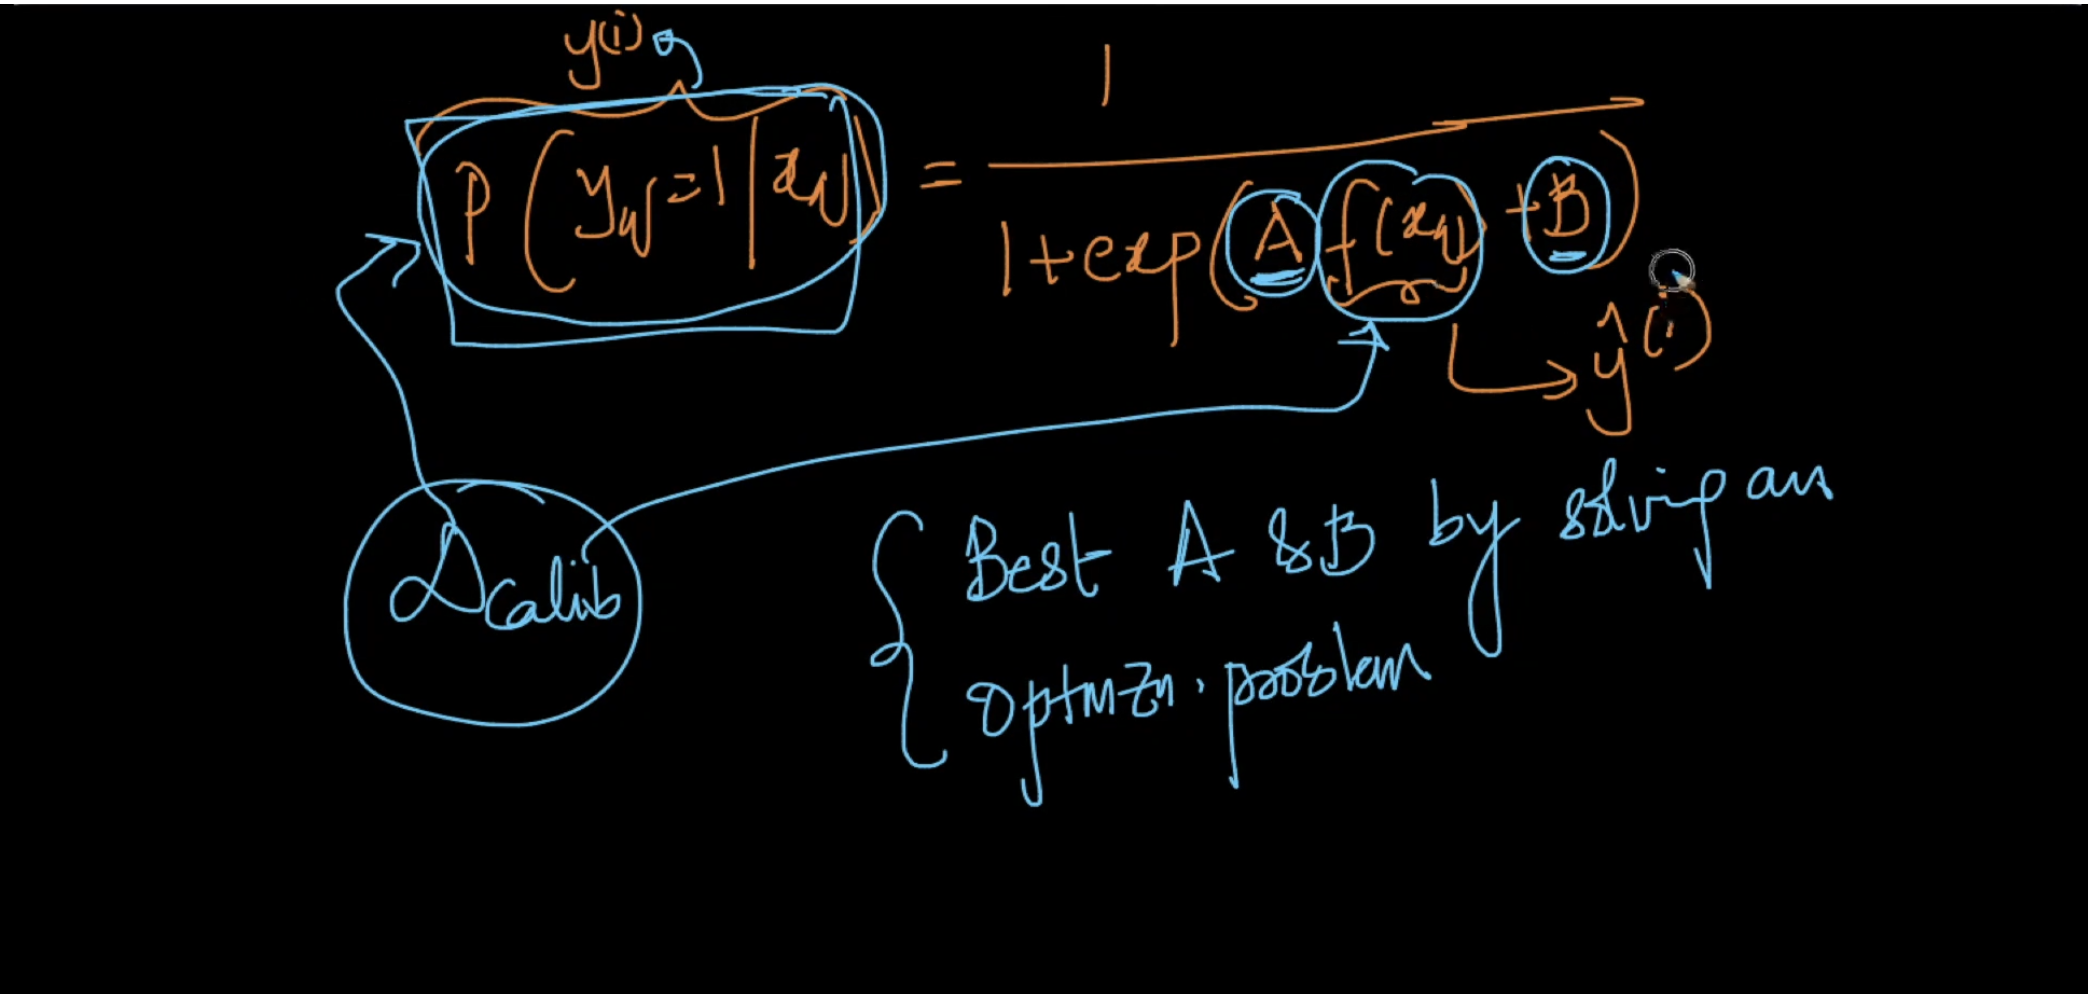 y(i)
P(y_q=1|x_q) = 1 / 1+exp(A f(x_q) +B)
ŷ(i)
D_Calib
Best A & B by solving an
Optmzn. problem